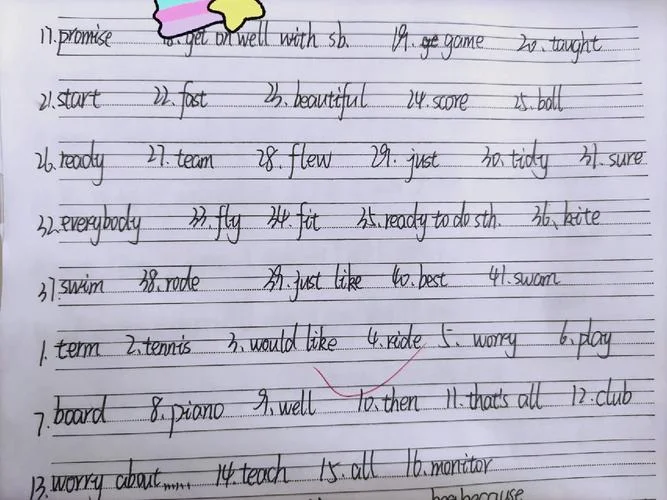 17. promise 18. get on well with sb. 19. game 20. taught
21. start 22. fast 23. beautiful 24. score 25. ball
26. ready 27. team 28. flew 29. just 30. tidy 31. sure
32. everybody 33. fly 34. fit 35. ready to do sth. 36. kite
37. swim 38. rode 39. just like 40. best 41. swam
1. term 2. tennis 3. would like 4. ride 5. worry 6. play
7. board 8. piano 9. well 10. then 11. that's all 12. club
13. worry about...... 14. teach 15. all 16. monitor